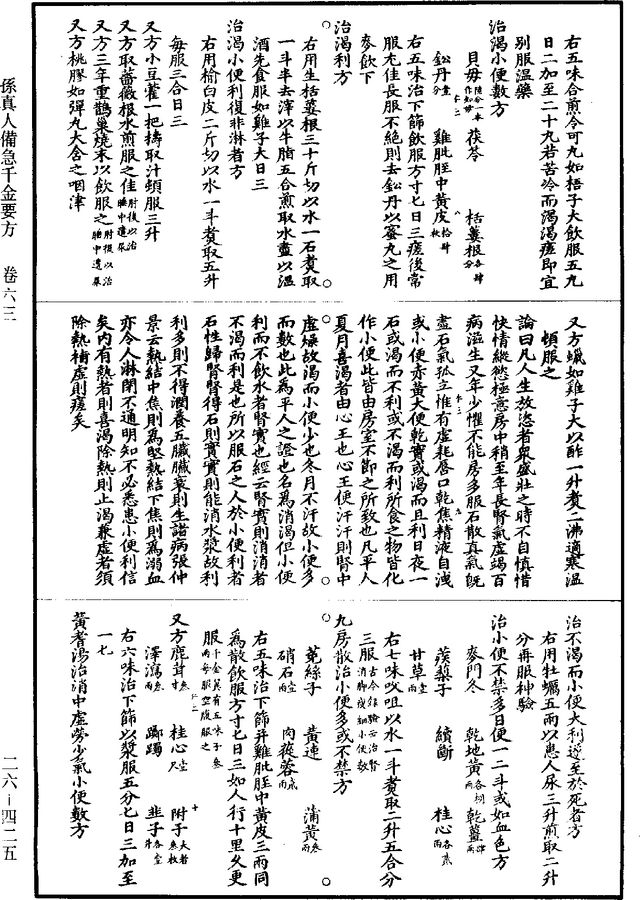 右五味合煎令可丸如梧子大飲服五九
日二加至二十九若苦冷而渴渴瘥即宜
別服溫藥
治渴小便數方
貝母 茯苓 栝蔞根
鈆丹 雞肶胵中黃皮
右五味治下篩飲服方寸七日三瘥後常
服尤佳長服不絕則去鈆丹以蜜丸之用
麥飲下
治渴利方
右用生栝蔞根三十斤切以水一石煑取
一斗半去滓以牛脂五合煎取水盡以溫
酒先食服如雞子大日三
治渴小便利復非淋者方
右用榆白皮二斤切以水一斗煑取五升
每服三合日三
又方小豆藿一把擣取汁頓服三升
又方取薔薇根水煎服之佳肘後以治睡中遺尿
又方三年重鵲巢燒末以飲服之肘後以治睡中遺尿
又方桃膠如彈丸大含之咽津
又方蠟如雞子大以酢一升煑二沸適寒溫
頓服之
論曰凡人生放恣者衆盛壯之時不自慎惜
快情縱慾極意房中稍至年長腎氣虛竭百
病滋生又年少懼不能房多服石散真氣旣
盡石氣孤立惟有虛耗唇口乾焦精液自洩
或小便赤黃大便乾實或渴而且利日夜一
石或渴而不利或不渴而利所食之物皆化
作小便此皆由房室不節之所致也凡平人
夏月喜渴者由心王也心王便汗汗則腎中
虛燥故渴而小便少也冬月不汗故小便多
而數也此為平人之證也名為消渴但小便
利而不飲水者腎實也經云腎實則消消者
不渴而利是也所以服石之人於小便利者
石性歸腎腎得石則實實則能消水漿故利
利多則不得潤養五臟臟衰則生諸病張仲
景云熱結中焦則為堅熱結下焦則為溺血
亦令人淋閉不通明知不必悉患小便利信
矣內有熱者則喜渴除熱則止渴兼虛者須
除熱補虛則瘥矣
治不渴而小便大利遂至於死者方
右用牡蠣五兩以患人尿三升煎取二升
分再服神驗
治小便不禁多日便一二斗或如血色方
麥門冬 乾地黃 乾薑
蒺䔧子 續斷 桂心
甘草
右七味㕮咀以水一斗煑取二升五合分
三服古今錄驗云治腎消脚瘦細小便數
九房散治小便多或不禁方
菟絲子 黃連 蒲黃
硝石 肉蓯蓉
右五味治下篩并雞肶胵中黃皮三兩同
為散飲服方寸七日三如人行十里久更
服
又方鹿茸 桂心 附子
澤瀉 躑躅 韭子
右六味治下篩以漿服五分七日三加至
一七
黃耆湯治消中虛勞少氣小便數方
孫真人備急千金要方 卷六三
二六—四二五